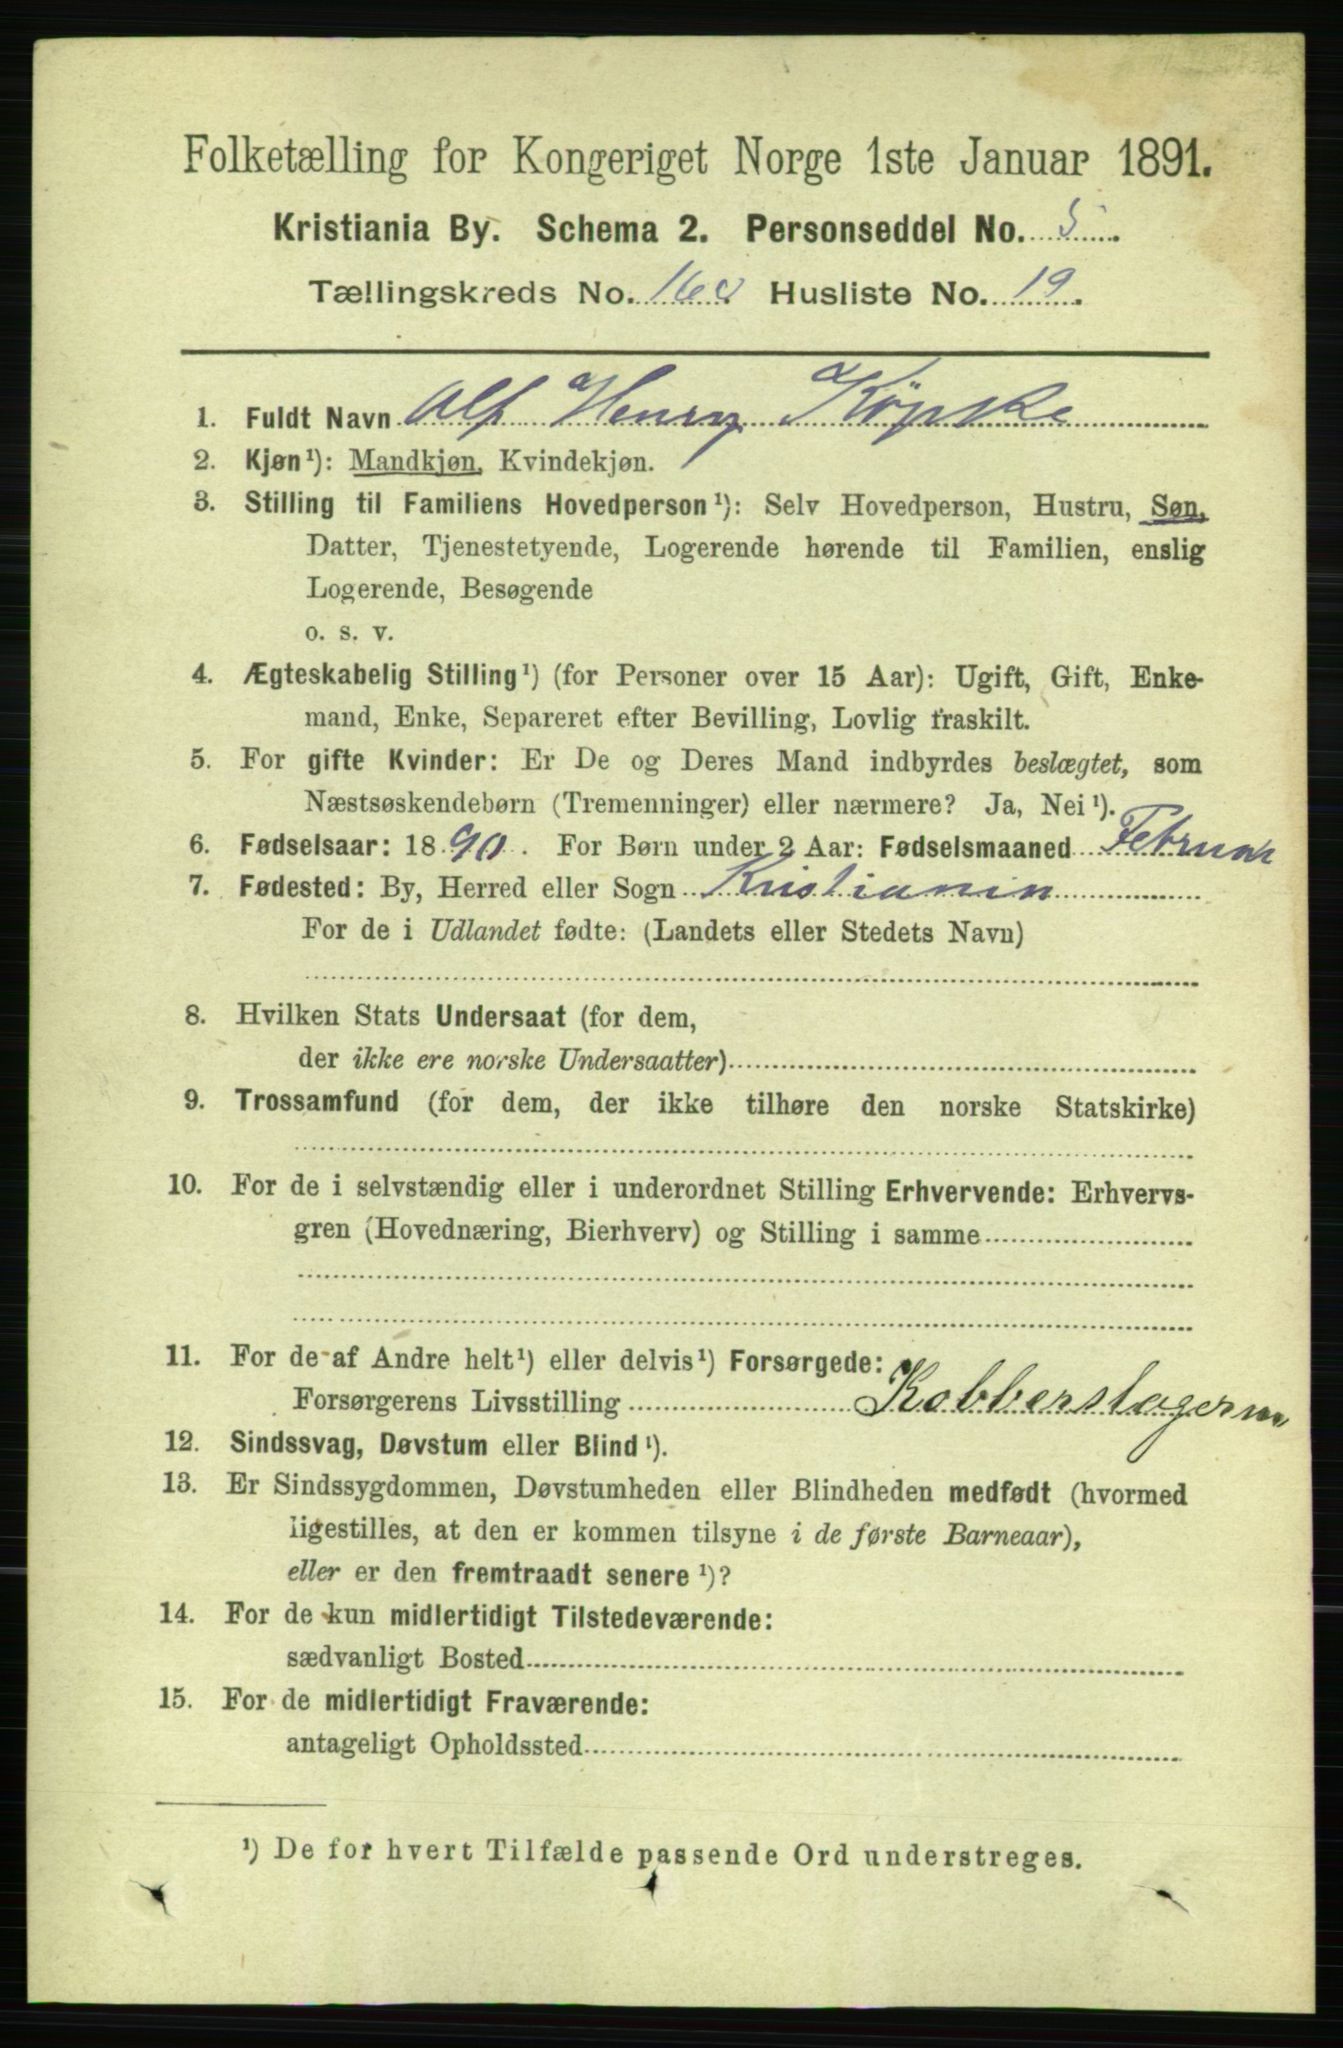 Folketælling for Kongeriget Norge 1ste Januar 1891.
Kristiania By. Schema 2. Personseddel No. 5.
Tællingskreds No. 168 Husliste No. 19.
1. Fuldt Navn Alf Henry Köpske
2. Kjøn¹): Mandkjøn, Kvindekjøn.
3. Stilling til Familiens Hovedperson¹): Selv Hovedperson, Hustru, Søn,
Datter, Tjenestetyende, Logerende hørende til Familien, enslig
Logerende, Besøgende
o. s. v.
4. Ægteskabelig Stilling¹) (for Personer over 15 Aar): Ugift, Gift, Enke-
mand, Enke, Separeret efter Bevilling, Lovlig fraskilt.
5. For gifte Kvinder: Er De og Deres Mand indbyrdes beslægtet, som
Næstsøskendebørn (Tremenninger) eller nærmere? Ja, Nei¹).
6. Fødselsaar: 1890. For Børn under 2 Aar: Fødselsmaaned Februar
7. Fødested: By, Herred eller Sogn Kristiania
For de i Udlandet fødte: (Landets eller Stedets Navn)
8. Hvilken Stats Undersaat (for dem,
der ikke ere norske Undersaatter)
9. Trossamfund (for dem, der ikke tilhøre den norske Statskirke)
10. For de i selvstændig eller i underordnet Stilling Erhvervende: Erhvervs-
gren (Hovednæring, Bierhverv) og Stilling i samme
11. For de af Andre helt¹) eller delvis¹) Forsørgede:
Forsørgerens Livsstilling Kobberslager
12. Sindssvag, Døvstum eller Blind¹).
13. Er Sindssygdommen, Døvstumheden eller Blindheden medfødt (hvormed
ligestilles, at den er kommen tilsyne i de første Barneaar),
eller er den fremtraadt senere¹)?
14. For de kun midlertidigt Tilstedeværende:
sædvanligt Bosted
15. For de midlertidigt Fraværende:
antageligt Opholdssted
¹) De for hvert Tilfælde passende Ord understreges.